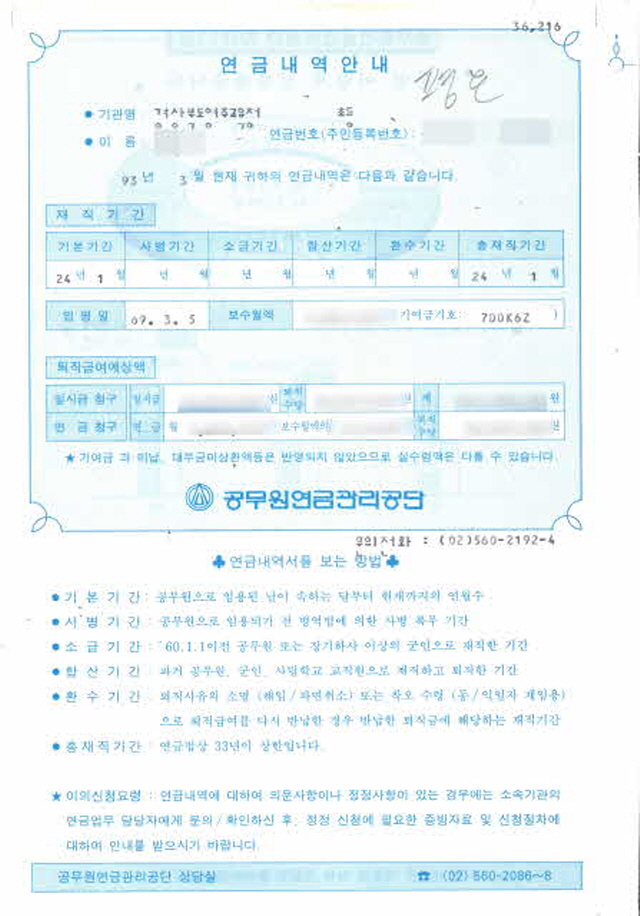 36,216
연금내역안내
● 기관명 초등
● 이 름 연금번호(주민등록번호) :
93년 3월 현재 귀하의 연금내역은 다음과 같습니다.
재직기간
기본기간 사병기간 소급기간 합산기간 환수기간 총재직기간
24년 1월 년 월 년 월 년 월 년 월 24년 1월
임명일 69. 3. 5 보수월액 기여금기호: 700K6Z )
퇴직급여예상액
일시금 청구 일시금 원 퇴직수당 원 계 원
연금청구 연금 월 보수월액의 퇴직수당 원
★ 기여금 과 미납, 대부금미상환액등은 반영되지 않았으므로 실수령액은 다를 수 있습니다.
공무원연금관리공단
문의전화 : (02)560-2192-4
♣ 연금내역서를 보는 방법 ♣
● 기본기간 : 공무원으로 임용된 날이 속하는 달부터 현재까지의 연월수
● 사병기간 : 공무원으로 임용되기 전 병역법에 의한 사병 복무 기간
● 소급기간 : '60.1.1이전 공무원 또는 장기하사 이상의 군인으로 재직한 기간
● 합산기간 : 과거 공무원, 군인, 사립학교 교직원으로 재직하고 퇴직한 기간
● 환수기간 : 퇴직사유의 소멸 (해임/파면취소) 또는 착오 수령 (동/익일자 재임용)
으로 퇴직급여를 다시 반납한 경우 반납한 퇴직금에 해당하는 재직기간
● 총재직기간 : 연금법상 33년이 상한입니다.
★ 이의신청요령 : 연금내역에 대하여 의문사항이나 정정사항이 있는 경우에는 소속기관의
연금업무 담당자에게 문의/확인하신 후, 정정 신청에 필요한 증빙자료 및 신청절차에
대하여 안내를 받으시기 바랍니다.
공무원연금관리공단 상담실 ☎ : (02) 560-2086~8